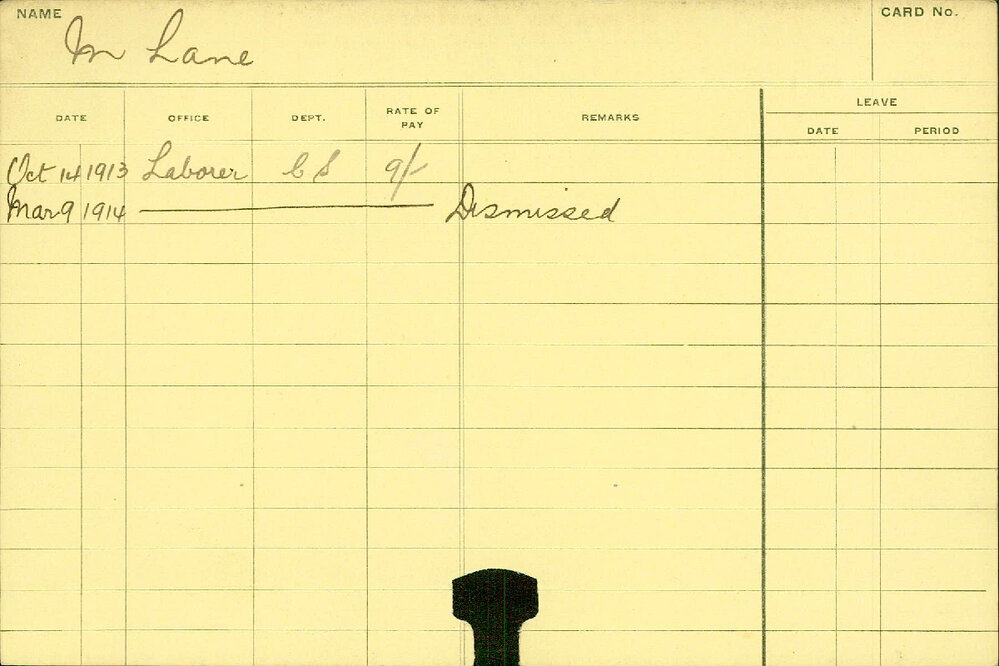 NAME
M Lane
CARD No.
DATE OFFICE DEPT. RATE OF PAY REMARKS LEAVE
DATE PERIOD
Oct 14 1913 Laborer C S 9/-
Mar 9 1914 Dismissed